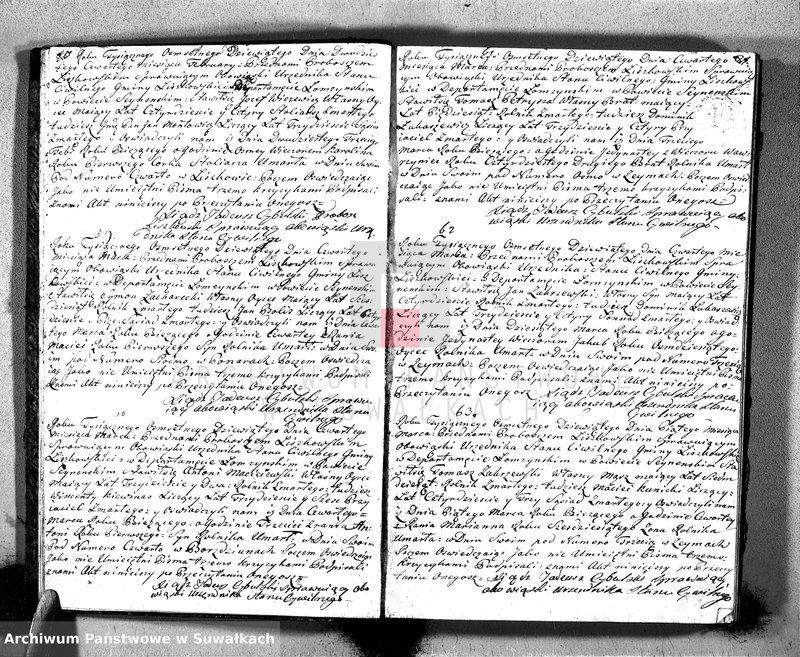 Roku Tysiącznego Osmsetnego Dziewiątego Dnia
tego Czwartego Miesiąca February: Przednami Proboszem
Liszkowskim Sprawuiącym Obowiąski Urzednika Stanu
Cywilnego Gminy Liszkowskiey: w Departamencie Lomzynskim
w Powiecie Seynenskim: Stawił się Jozef Własny Oy
ciec Maiący Lat Czterdziescie y Cztery Stolarz Zmarłego
tudziesz Liczący Lat Trzydziescie
Zmarłego: y Oswiadczyli nam iż Dnia Dwudziestego Trzeciego
Roku Biezącego ogodzinie Wieczorem Karolika
Roku Pierwszego Corka Stolarza Umarła w Dniu
Pod Numero Czwarto w Liszkowie: Poczem Oswiedczaiąc
Jako nie Umieiętni Pisma trzemo krzyzykami Podpisali:
znami Akt niniejszy po Przeczytaniu Onegosz
Xiądz Tadeusz Cybulski Probosz
Liszkowski Sprawuiący obowiąski Urzę
dnika Stanu Cywilnego
Roku Tysiącznego Osmsetnego Dziewiątego Dnia Czwartego
Miesiąca Marca: Przednami Proboszem Liszkowskim Sprawu
iącym Obowiąski Urzednika Stanu Cywilnego Gminy Lisz
kowskiey: w Departamencie Lomzynskim w Powiecie Seynenskim
Stawił się Symon Zacharecki Własny Oyciec Maiący Lat Szes
dziesiąt Rolnik Zmarłego tudziesz Jan Liczący Lat
dziescie Sąsiad Zmarłego: y Oswiadczyli nam iż Dnia Czwar
tego Marca Roku Biezącego o godzinie Czwartey z Rania
Maciey Roku Pierwszego Syn Rolnika Umarł: w Dniu Swo
im pod Numero Siodmo w Ponarach: Poczem Oswiedcza
iąc Jako nie Umieiętni Pisma trzemo krzyzykami Podpisali
znami Akt niniejszy po Przeczytaniu Onegosz
Xiądz Tadeusz Cybulski Sprawu
iący obowiąski Urzednika Stanu
Cywilnego
Roku Tysiącznego Osmsetnego Dziewiątego Dnia Czwartego
Miesiąca Marca: Przednami Proboszem Liszkowskim
Sprawuiącym Obowiąski Urzednika Stanu Cywilnego Gminy
Liszkowskiey: w Departamencie Lomzynskim w Powiecie
Seynenskim Stawił się Antoni Własny Oyciec
Maiący Lat Trzydziescie y Dwa: Rolnik Zmarłego: tudziesz
Wincenty Liczący Lat Trzydziescie y Szesc Przy
iaciel Zmarłego: y Oswiadczyli nam iż Dnia Czwartego
Marca Roku Biezącego: ogodzinie Trzeciey z rania An
toni Roku Pierwszego: Syn Rolnika Umarł: w Dniu Swoim
Pod Numero Czwarto w Poczem Oswiedczaiąc
Jako nie Umieiętni Pisma trzemo krzyzykami Podpisali:
znami Akt niniejszy po Przeczytaniu Onegosz
Xiądz Tadeusz Cybulski Sprawuiący obo
wiąski Urzednika Stanu Cywilnego
Roku Tysiącznego Osmsetnego Dziewiątego Dnia Czwartego
Miesiąca Marca: Przednami Proboszem Liszkowskim Sprawuią
cym Obowiąski Urzednika Stanu Cywilnego: Gminy Liszkow
skiey w Departamencie Lomzynskim w Powiecie Seynenskim
Stawił się Tomasz Pietryza Własny Brat maiący
Lat Pięcdziesiąt: Rolnik Zmarłego: tudziesz Dominik
Lukaszewicz Liczący Lat Trzydziescie y Cztery Przy
iaciel Zmarłego: y Oswiadczyli nam iż Dnia Trzeciego
Marca Roku Biezącego ogodzinie Jedynastey z Wieczora Waw
rzyniec Roku Czterydziestego Drugiego Brat Rolnika Umarł
w Dniu Swoim pod Numero Osmo w Leymach: Poczem Oswied
czaiąc Jako nie Umieiętni Pisma trzemo krzyzykami Podpi
sali: znami Akt niniejszy po Przeczytaniu Onegosz
Xiądz Tadeusz Cybulski Sprawuiący obo
wiąski Urzednika Stanu Cywilnego
62
Roku Tysiącznego Osmsetnego Dziewiątego Dnia Czwartego Mie
siąca Marca: Przednami Proboszem Liszkowskim Spra
wuiącym Obowiąski Urzednika: Stanu Cywilnego Gminy
Liszkowskiey: w Departamencie Lomzynskim w Powiecie Sey
nenskim: Stawił się Jan Zakrzewski: Własny Syn Maiący Lat
Czterydziescie Rolnik Zmarłego: tudziesz Dominik Lukaszewicz
Liczący Lat Trzydziescie y Cztery Sąsiad Zmarłego: y Oswiad
czyli nam iż Dnia Marca Roku Biezącego ogo
dzinie Jedynastey Wieczorem Jakub Roku Osmdziesiątego:
Oyciec Rolnika Umarł: w Dniu Swoim pod Numero Trzecio
w Leymach: Poczem Oswiedczaiąc Jako nie Umieiętni Pisma
trzemo krzyzykami Podpisali znami Akt niniejszy po
Przeczytaniu Onegosz Xiądz Tadeusz Cybulski Sprawu
iący obowiąski Urzednika Stanu
Cywilnego
63
Roku Tysiącznego Osmsetnego Dziewiątego Dnia Piątego Miesiąca
Marca: Przednami Proboszem Liszkowskim Sprawuiącym
Obowiąski Urzednika Stanu Cywilnego Gminy Liszkowskiey
w Departamencie Lomzynskim w Powiecie Seynenskim Sta
wił się Tomasz Zakrzewski Własny Mąsz maiący Lat Siedm
dziesiąt: Rolnik Zmarłego: tudziesz Maciey Kunicki Liczący:
Lat Czterydziescie y Trzy Sąsiad Zmarłego: y Oswiadczyli nam
iż Dnia Piątego Marca Roku Biezącego o Godzinie Czwartey
z Rania Marianna Roku Szescdziesiątego Zona Rolnika
Umarła: w Dniu Swoim pod Numero Trzecio w Leymach
Poczem Oswiedczaiąc Jako nie Umieiętni Pisma trzemo
krzyzykami Podpisali: znami Akt niniejszy po Przeczy
taniu Onegosz Xiądz Tadeusz Cybulski Sprawuiący
obowiąski Urzednika Stanu Cywilnego
ARCHIWUM PAŃSTWOWE
W SUWAŁKACH
Archiwum Państwowe w Suwałkach